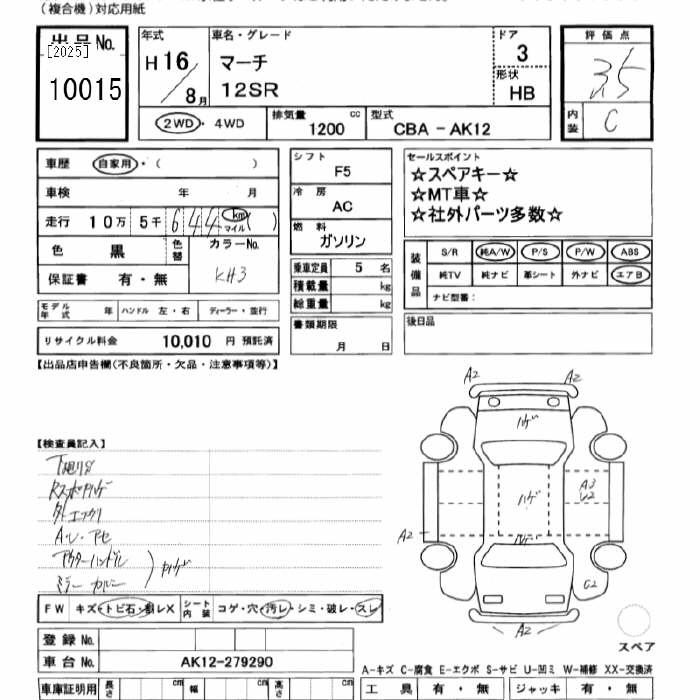 (複合機)対応用紙
出品No.
[2025]
10015
年式
H16/8月
車名・グレード
マーチ
12SR
ドア
3
形状
HB
2WD・4WD
排気量 cc
1200
型式
CBA - AK12
評価点
3.5
内装
C
車歴 自家用・( )
車検 年 月
走行 10万 5千 644 km マイル ( )
色 黒 色替
カラーNo.
KH3
保証書 有・無
モデル年式 年 ハンドル 左・右 ディーラー・並行
リサイクル料金 10,010 円 預託済
シフト
F5
冷房
AC
燃料
ガソリン
乗車定員 5 名
積載量 kg
総重量 kg
書類期限
月 日
セールスポイント
☆スペアキー☆
☆MT車☆
☆社外パーツ多数☆
装備品
S/R 純A/W P/S P/W ABS
純TV 純ナビ 革シート 外ナビ エアB
ナビ型番:
後日品
【出品店申告欄(不良箇所・欠品・注意事項等)】
【検査員記入】
下廻りS
A・L・アセ
アウターハンドル
ミラー カバー
ハゲ
A2 A2
ハゲ
ハゲ
A3
U2
A2
A2
FW キズ・トビ石・割レX シート内装 コゲ・穴・汚レ・シミ・破レ・スレ
スペア
登録No.
車台No. AK12-279290
A-キズ C-腐食 E-エクボ S-サビ U-凹ミ W-補修 XX-交換済
車庫証明用 長さ cm 幅 cm 高さ cm
工具 有・無 ジャッキ 有・無